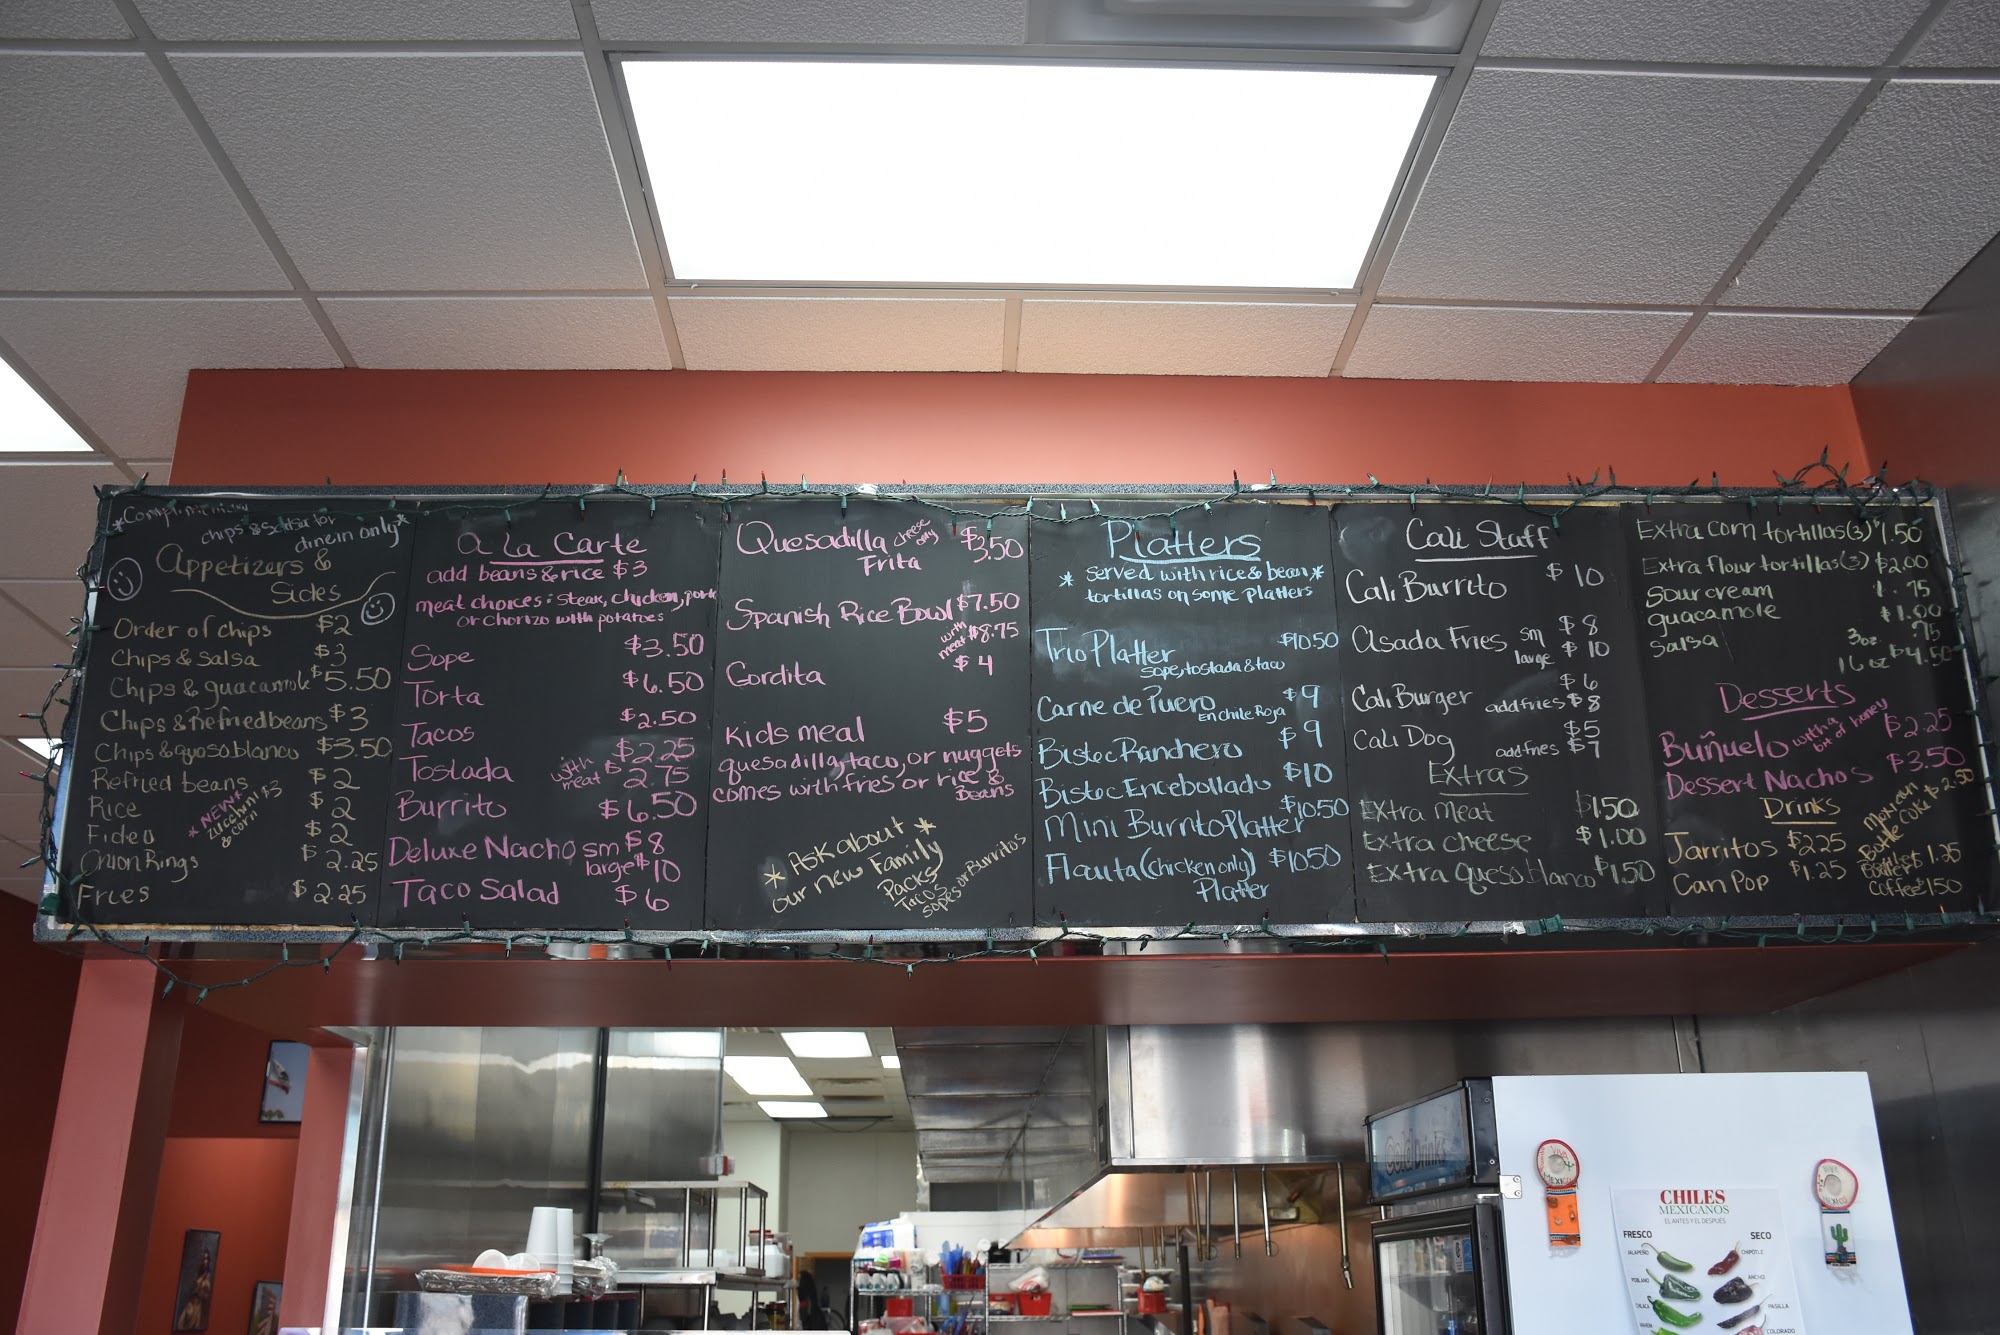 *Complimentary
chips & salsa for
dinein only*
Appetizers &
Sides
Order of chips $2
Chips & salsa $3
Chips & guacamole $5.50
Chips & Refried beans $3
Chips & queso blanco $3.50
Refried beans $2
Rice $2
Fideo $2
Onion Rings $2.25
Fries $2.25
*NEW*
zucchini $3
&
corn
A La Carte
add beans & rice $3
meat choices: steak, chicken, pork
or chorizo with potatoes
Sope $3.50
Torta $6.50
Tacos $2.50
Tostada $2.25
with meat $2.75
Burrito $6.50
Deluxe Nacho sm $8
large $10
Taco Salad $6
Quesadilla cheese only $3.50
Frita
Spanish Rice Bowl $7.50
with meat $8.75
Gordita $4
Kids meal $5
quesadilla, taco, or nuggets
comes with fries or rice &
Beans
*Ask about*
our new Family
Packs
Tacos
sopes or Burritos
Platters
*served with rice & bean*
tortillas on some platters
Trio Platter $10.50
sope, tostada & taco
Carne de Puero $9
en chile Roja
Bistec Ranchero $9
Bistec Encebollado $10
Mini Burrito Platter $10.50
Flauta (chicken only) $10.50
Platter
Cali Staff
Cali Burrito $10
Asada Fries sm $8
large $10
Cali Burger $6
add fries $8
Cali Dog $5
add fries $7
Extras
Extra meat $1.50
Extra cheese $1.00
Extra Queso blanco $1.50
Extra corn tortillas (3) $1.50
Extra flour tortillas (3) $2.00
Sour cream .75
guacamole $1.00
Salsa 3oz .75
16 oz $4.50
Desserts
Buñuelo with a bit of honey $2.25
Dessert Nachos $3.50
Drinks
Jarritos $2.25
Can Pop $1.25
Mexican
Bottle Coke $2.50
Bottle $1.25
Coffee $1.50
Cold Drinks
VIVA
MEXICO
VIVA
MEXICO
CHILES
MEXICANOS
EL ANTES Y EL DESPUÉS
FRESCO SECO
JALAPEÑO CHIPOTLE
POBLANO ANCHO
CHILACA PASILLA
COLORADO